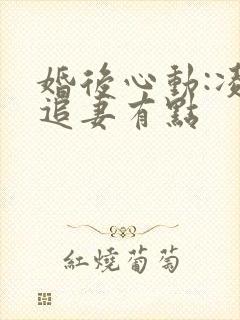 婚後心動:凌
追妻有點
紅燒葡萄